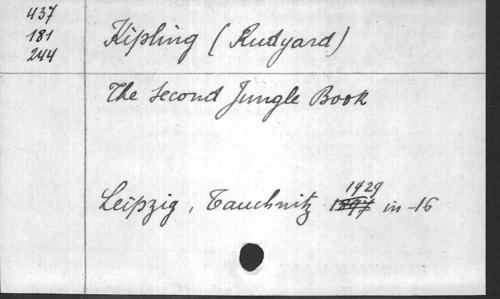 437
181
244
Kipling (Rudyard)
The Second Jungle Book
1929
Leipzig, Tauchnitz 1897 in-16